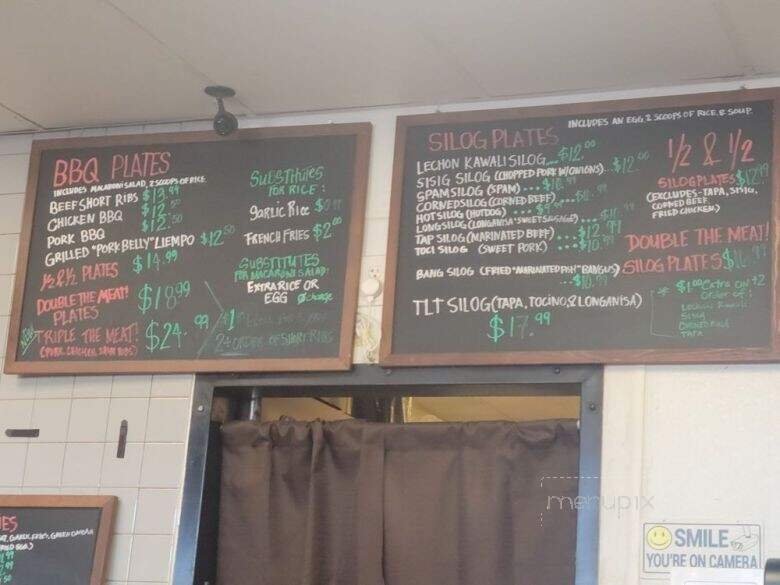 BBQ PLATES
INCLUDES MACARONI SALAD, 2 SCOOPS OF RICE
BEEF SHORT RIBS $13.99
CHICKEN BBQ $12.50
PORK BBQ $12.50
GRILLED "PORK BELLY" LIEMPO $12.50
1/2 & 1/2 PLATES $14.99
DOUBLE THE MEAT! PLATES $18.99
NEW TRIPLE THE MEAT! $24.99
(PORK, CHICKEN, SHORT RIBS)
SUBSTITUTES
FOR RICE:
GARLIC RICE
FRENCH FRIES $2.00
SUBSTITUTES
FOR MACARONI SALAD:
EXTRA RICE OR
EGG
$1
2+ ORDER OF SHORT RIBS
SILOG PLATES
INCLUDES AN EGG, 2 SCOOPS OF RICE & SOUP
LECHON KAWALI SILOG... $12.00
SISIG SILOG (CHOPPED PORK W/ONIONS) $12.00
SPAMSILOG (SPAM)
CORNEDSILOG (CORNED BEEF)
HOTSILOG (HOTDOG)
LONGSILOG (LONGANISA "SWEET SAUSAGE")
TAP SILOG (MARINATED BEEF) $12.99
TOCI SILOG (SWEET PORK)
BANG SILOG (FRIED "MARINATED FISH" BANGUS)
$10.99
TLT SILOG (TAPA, TOCINO, & LONGANISA)
$17.99
1/2 & 1/2
SILOG PLATES
(EXCLUDES-TAPA, SISIG,
CORNED BEEF
FRIED CHICKEN)
DOUBLE THE MEAT!
SILOG PLATES
* $1.00 Extra on 1/2
Order of:
Lechon Kawali
Sisig
Corned Beef
TAPA
menupix
SMILE
YOU'RE ON CAMERA